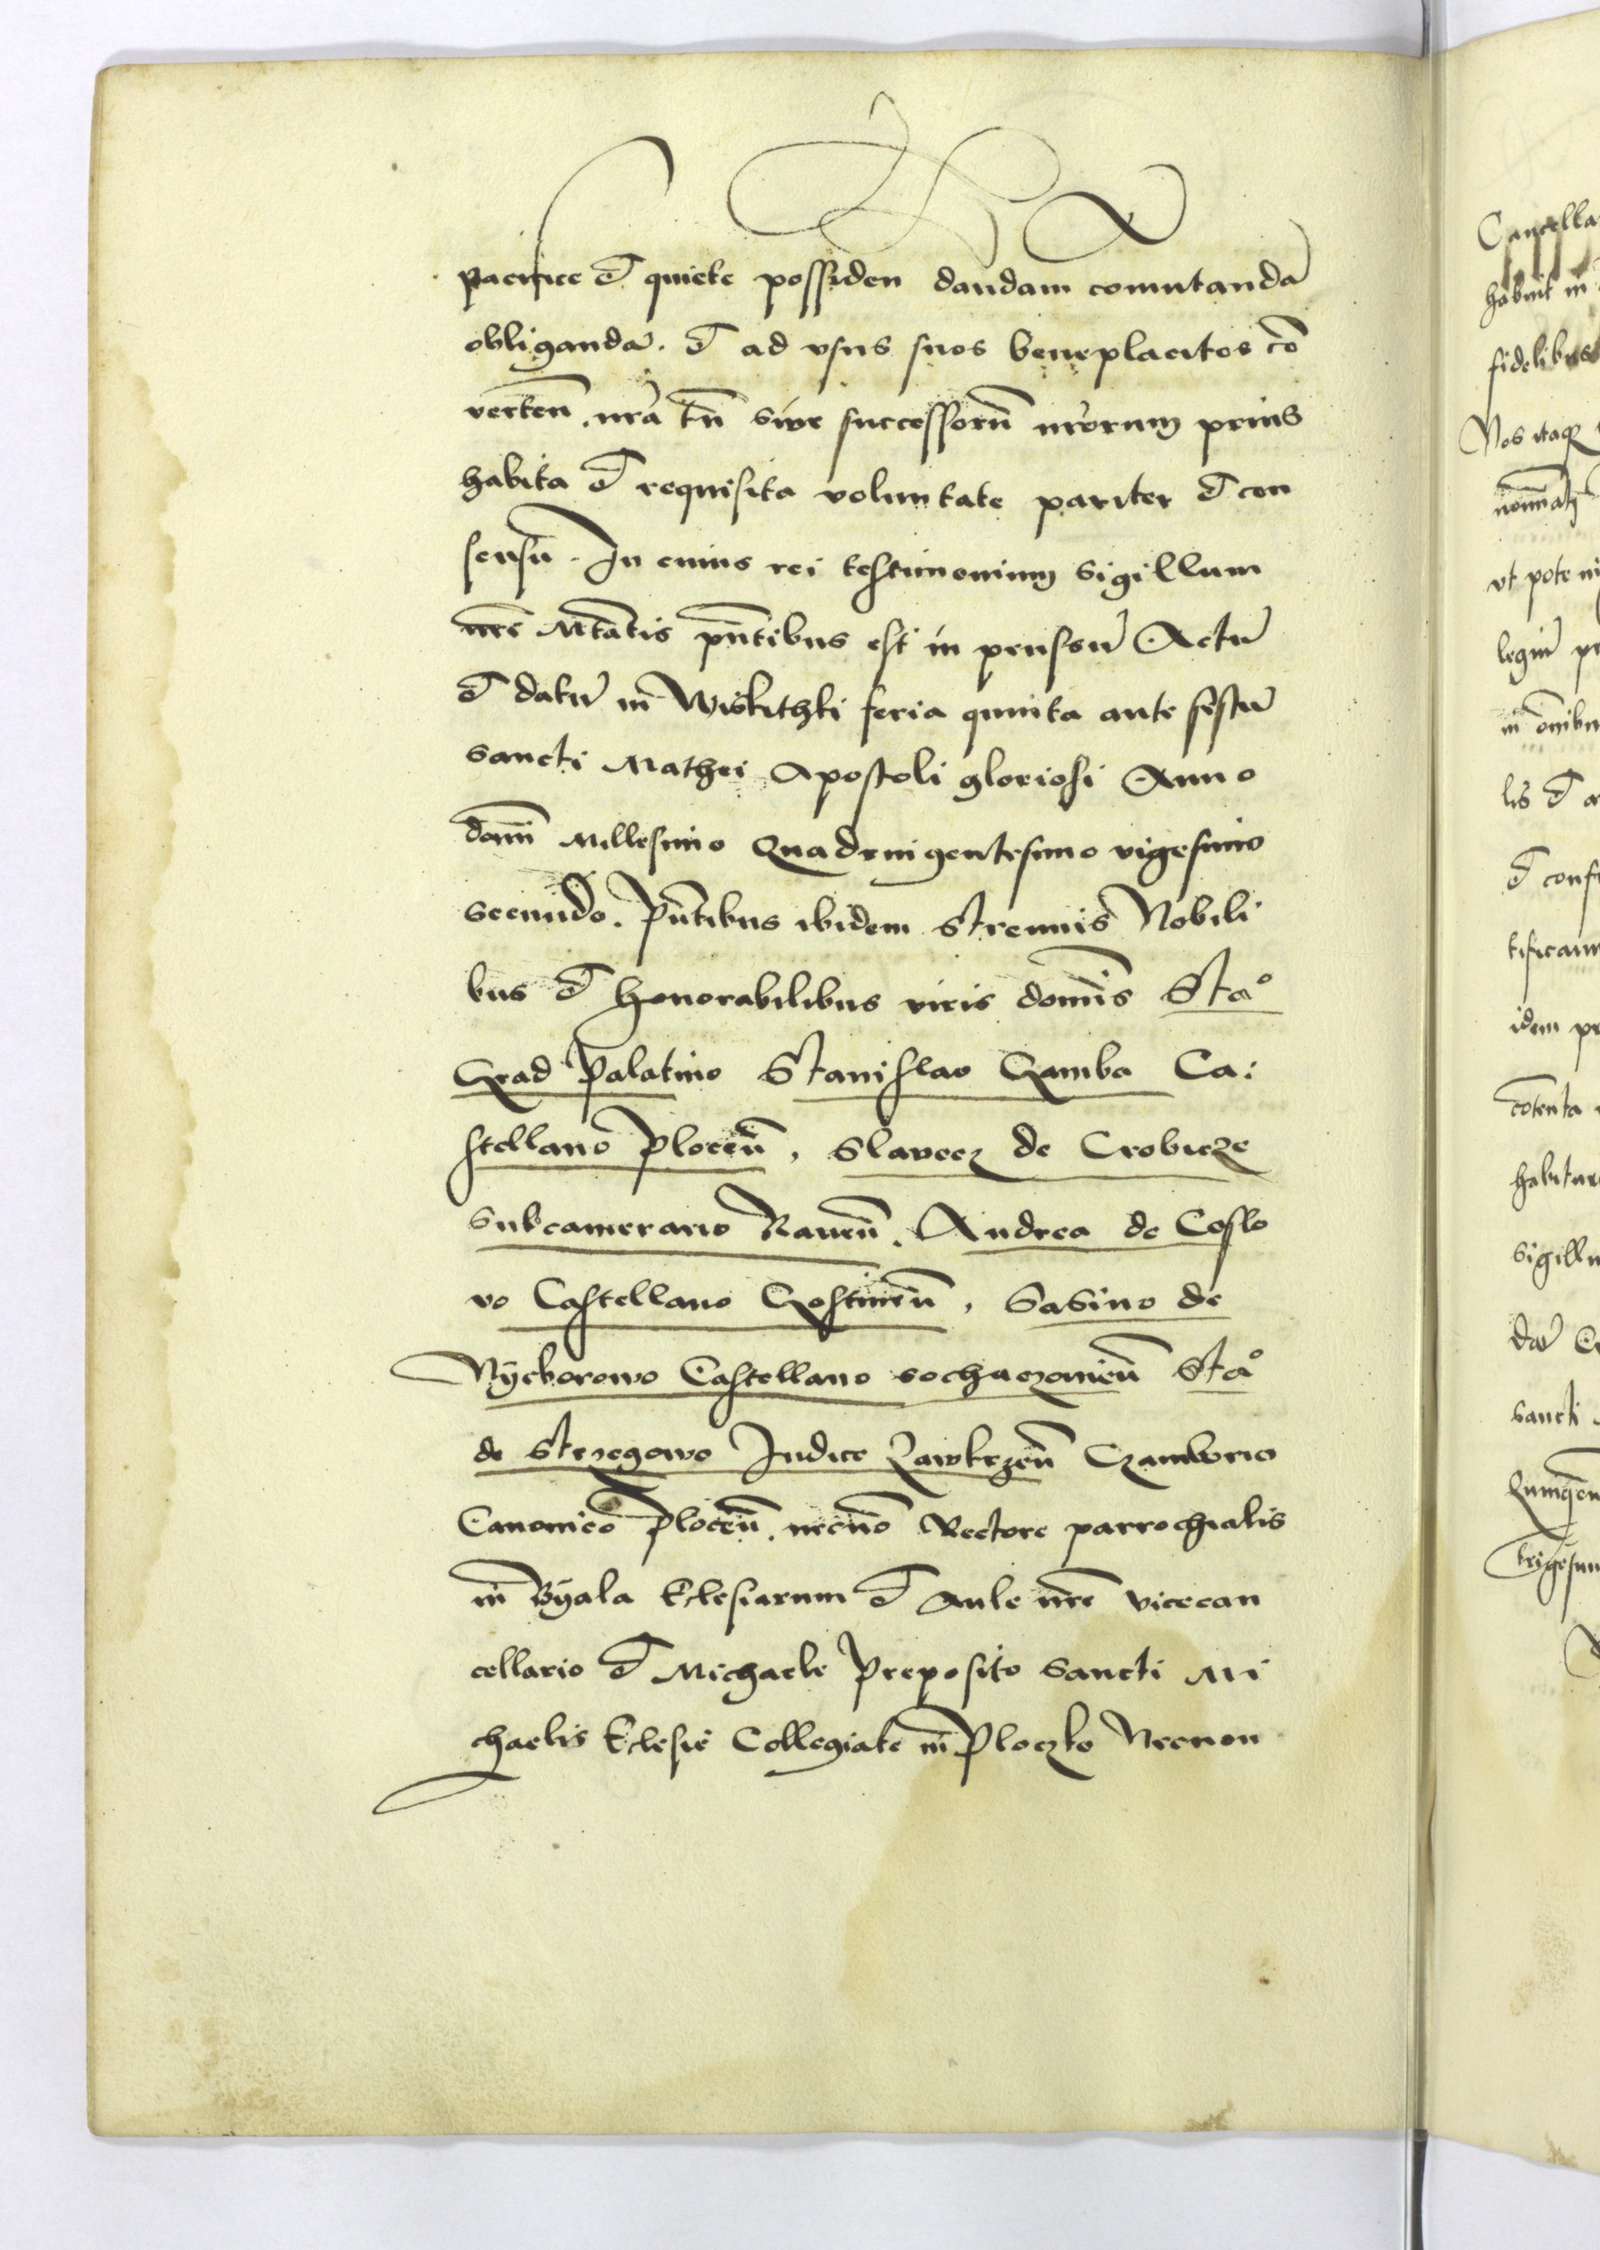 pacifice et quiete possiden dandam comutandā
obligandā. et ad vsus suos beneplacitos cō
verten̄. nrā tn̄ siue successorū nrorum prius
habita et requisita voluntate pariter et con
sensu. In cuius rei testimonium sigillum
nrē Mtātis pn̄tibus est in pensum Actū
et datū in Wiskithki feria quinta ante festū
sancti Mathei Apostoli gloriosi Anno
domī Millesimo Quadringentesimo vigesimo
secundo. Pn̄tibus ibidem Strenuis Nobili
bus et honorabilibus viris domīs Sta°
Grad Palatino Stanislao Gamba Ca:
stellano Plocen̄, Slavecz de Crobicze
Subcamerario Raven̄. Andrea de Coslo
vo Castellano Gostinen̄, Sasino de
Nyeborowo Castellano sochaczovien̄ Sta°
de Strzegowo Iudice Zawkrzen̄ Czamborio
Canonico Plocen̄. necnō Rectore parrochialis
in Byala Eclesiarum et Aule nrē vicecan
cellario et Michaele Preposito Sancti Mi
chaelis Eclesie Collegiate in Ploczko Necnon
Cancella
habuit in
fidelibus
Nos itaq
nominati
vt pote
legiū
in ōnibu
lis et
et conf
tificam
idem
cōtenta
habitur
Sigillu
dat
Sancti
Quinqen
trigesim